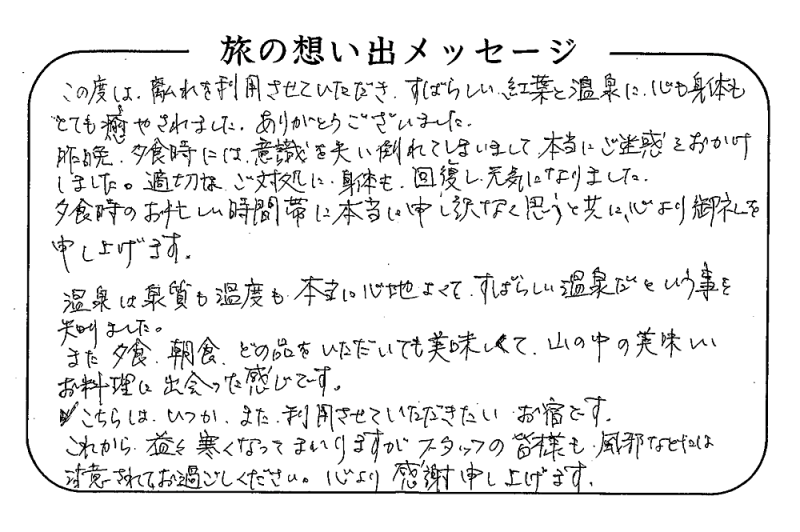 旅の想い出メッセージ
この度は、離れを利用させていただき、すばらしい紅葉と温泉に、心も身体も
とても癒やされました。ありがとうございました。
昨晩、夕食時には、意識を失い倒れてしまいまして、本当にご迷惑をおかけ
しました。適切な、ご対処に、身体も、回復し、元気になりました。
夕食時のお忙しい時間帯に本当に申し訳なく思うと共に、心より御礼を
申し上げます。
温泉は泉質も温度も、本当に心地よくて、すばらしい温泉だという事を
知りました。
また夕食、朝食、どの品をいただいても美味しくて、山の中の美味しい
お料理に出会った感じです。
こちらは、いつか、また、利用させていただきたい お宿です。
これから、益々寒くなってまいりますが スタッフの皆様も、風邪などには
注意されてお過ごしください。心より感謝申し上げます。